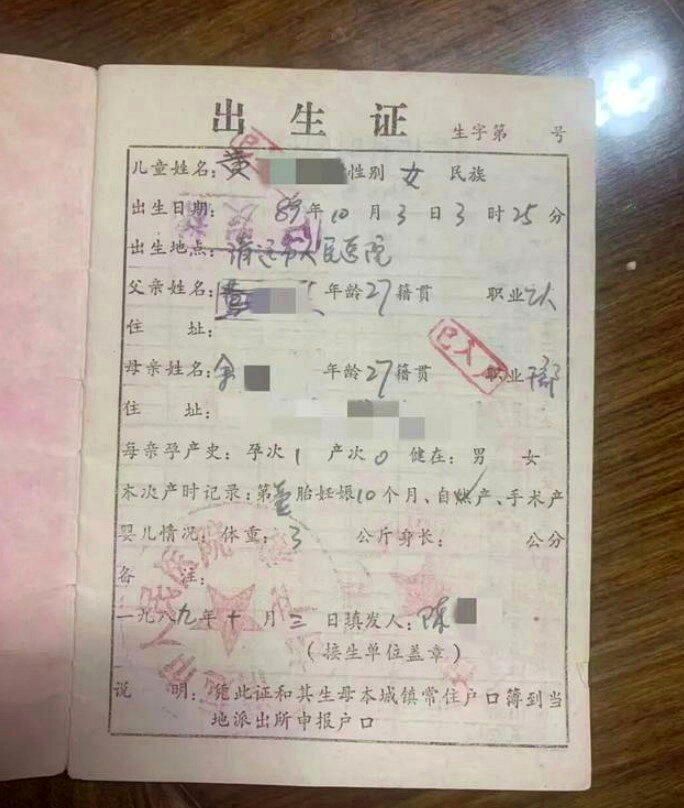 出生证
生字第 号
儿童姓名：黄 性别 女 民族
出生日期： 89年10月3日3时25分
出生地点：清远市人民医院
父亲姓名： 年龄27籍贯 职业
住 址：
已入户
母亲姓名： 年龄27籍贯 职业干部
住 址：
母亲孕产史：孕次1 产次0 健在：男 女
本次产时记录：第壹胎妊娠10个月、自然产、手术产
婴儿情况：体重：3 公斤身长： 公分
备 注：
一九八九年十月三日填发人：陈
（接生单位盖章）
说 明：凭此证和其生母本城镇常住户口簿到当
地派出所申报户口